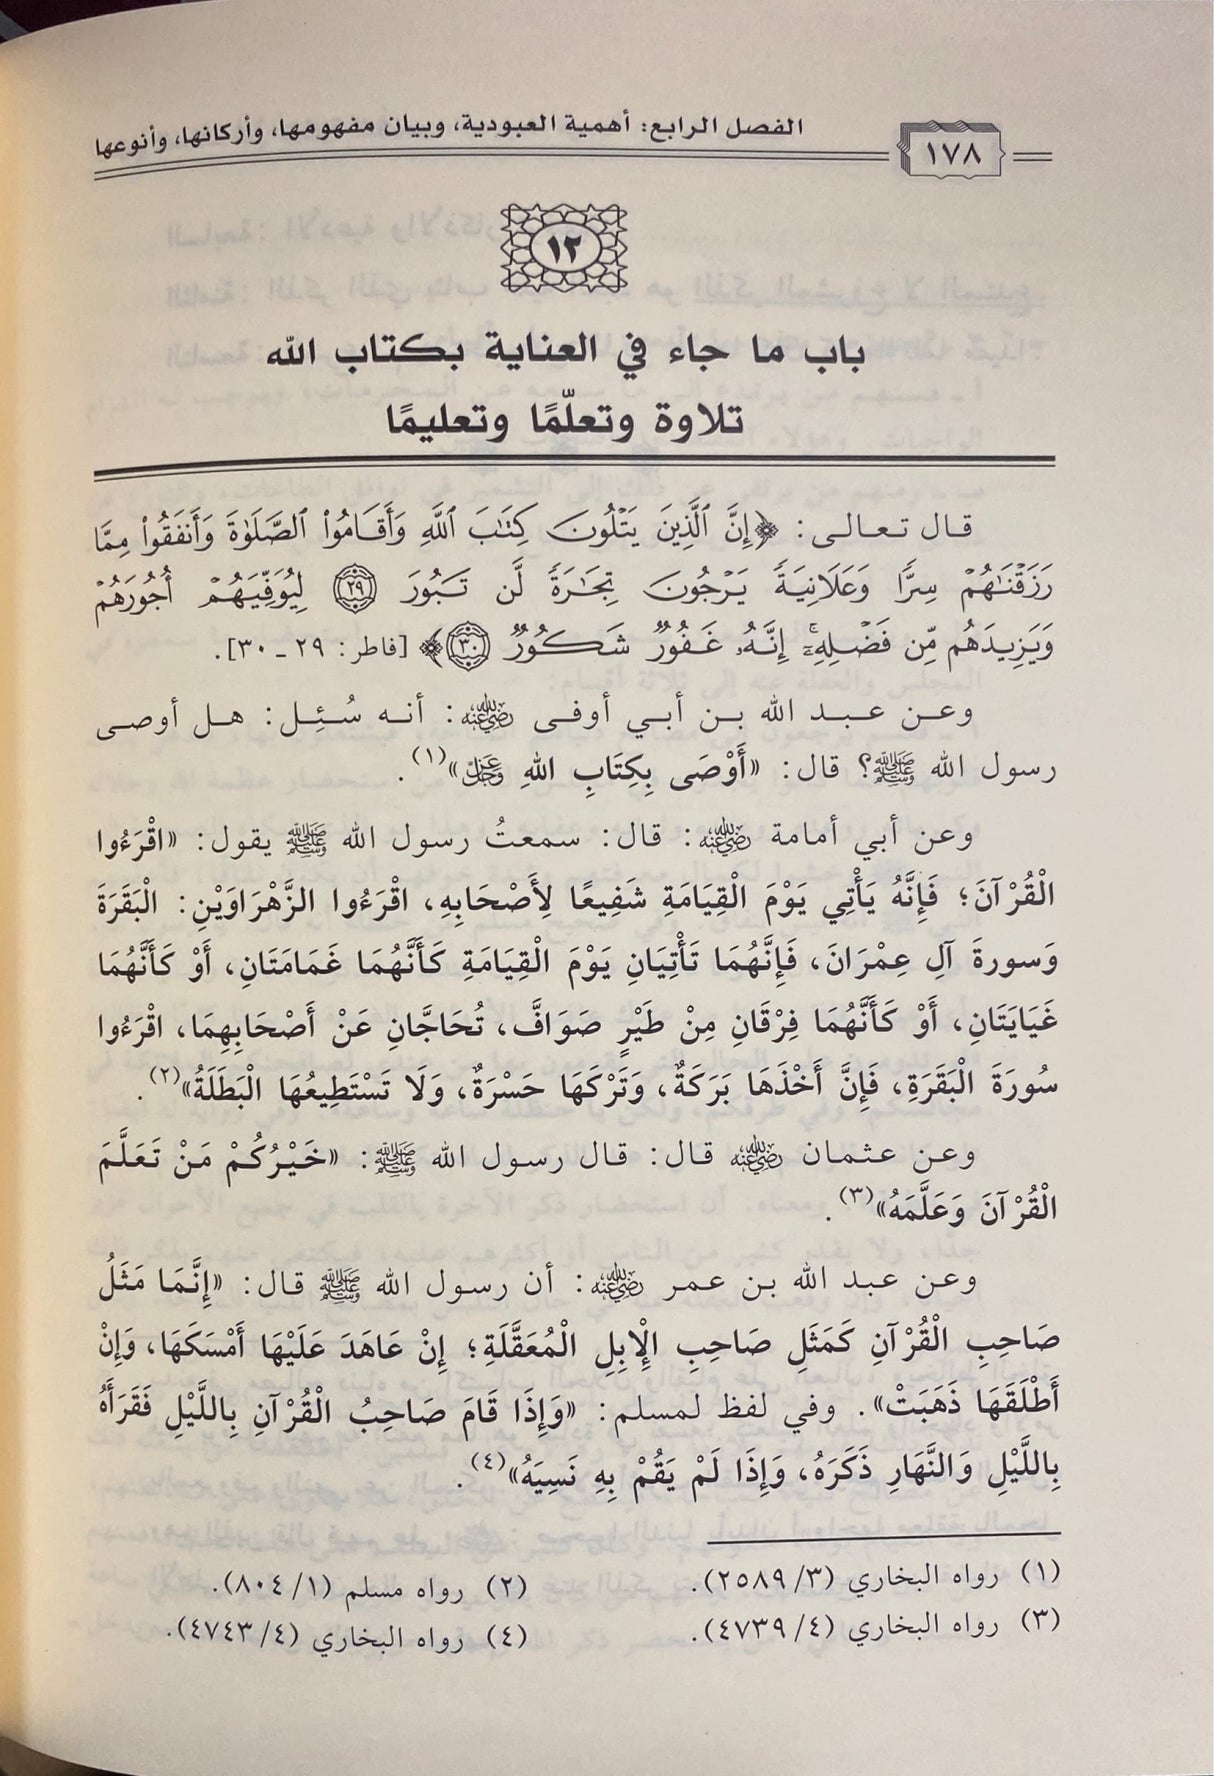 ١٧٨
الفصل الرابع: أهمية العبودية، وبيان مفهومها، وأركانها، وأنوعها
١٢
باب ما جاء في العناية بكتاب الله
تلاوة وتعلّمًا وتعليمًا
قال تعالى: ﴿إِنَّ ٱلَّذِينَ يَتْلُونَ كِتَٰبَ ٱللَّهِ وَأَقَامُوا۟ ٱلصَّلَوٰةَ وَأَنفَقُوا۟ مِمَّا
رَزَقْنَٰهُمْ سِرًّا وَعَلَانِيَةً يَرْجُونَ تِجَٰرَةً لَّن تَبُورَ ﴿٢٩﴾ لِيُوَفِّيَهُمْ أُجُورَهُمْ
وَيَزِيدَهُم مِّن فَضْلِهِۦٓ إِنَّهُۥ غَفُورٌ شَكُورٌ ﴿٣٠﴾﴾ [فاطر: ٢٩ ـ ٣٠].
وعن عبد الله بن أبي أوفى رضي الله عنه: أنه سُئِل: هل أوصى
رسول الله ﷺ؟ قال: «أَوْصَى بِكِتَابِ اللهِ عز وجل»(١).
وعن أبي أمامة رضي الله عنه: قال: سمعتُ رسول الله ﷺ يقول: «اقْرَءُوا
الْقُرْآنَ؛ فَإِنَّهُ يَأْتِي يَوْمَ الْقِيَامَةِ شَفِيعًا لِأَصْحَابِهِ، اقْرَءُوا الزَّهْرَاوَيْنِ: الْبَقَرَةَ
وَسورةَ آلِ عِمْرَانَ، فَإِنَّهُمَا تَأْتِيَانِ يَوْمَ الْقِيَامَةِ كَأَنَّهُمَا غَمَامَتَانِ، أَوْ كَأَنَّهُمَا
غَيَايَتَانِ، أَوْ كَأَنَّهُمَا فِرْقَانِ مِنْ طَيْرٍ صَوَافَّ، تُحَاجَّانِ عَنْ أَصْحَابِهِمَا، اقْرَءُوا
سُورَةَ الْبَقَرَةِ، فَإِنَّ أَخْذَهَا بَرَكَةٌ، وَتَرْكَهَا حَسْرَةٌ، وَلَا تَسْتَطِيعُهَا الْبَطَلَةُ»(٢).
وعن عثمان رضي الله عنه قال: قال رسول الله ﷺ: «خَيْرُكُمْ مَنْ تَعَلَّمَ
الْقُرْآنَ وَعَلَّمَهُ»(٣).
وعن عبد الله بن عمر رضي الله عنه: أن رسول الله ﷺ قال: «إِنَّمَا مَثَلُ
صَاحِبِ الْقُرْآنِ كَمَثَلِ صَاحِبِ الْإِبِلِ الْمُعَقَّلَةِ؛ إِنْ عَاهَدَ عَلَيْهَا أَمْسَكَهَا، وَإِنْ
أَطْلَقَهَا ذَهَبَتْ». وفي لفظ لمسلم: «وَإِذَا قَامَ صَاحِبُ الْقُرْآنِ بِاللَّيْلِ فَقَرَأَهُ
بِاللَّيْلِ وَالنَّهَارِ ذَكَرَهُ، وَإِذَا لَمْ يَقُمْ بِهِ نَسِيَهُ»(٤).
(١) رواه البخاري (٣/ ٢٥٨٩).
(٢) رواه مسلم (١/ ٨٠٤).
(٣) رواه البخاري (٤/ ٤٧٣٩).
(٤) رواه البخاري (٤/ ٤٧٤٣).